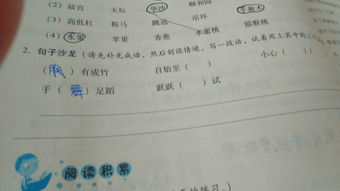 (2) 故宫 天坛 长沙 颐和园
(3) 高低杠 鞍马 跳远 吊环 平衡木
(4) 水果 苹果 香蕉 水蜜桃 猕猴桃
2. 句子沙龙 (请先补成语,然后创设情境,写一段话,试着用上其中的
(胸)有成竹 自始至( ) 小心( )(
手(舞)足蹈 跃跃( )试
阅读积累